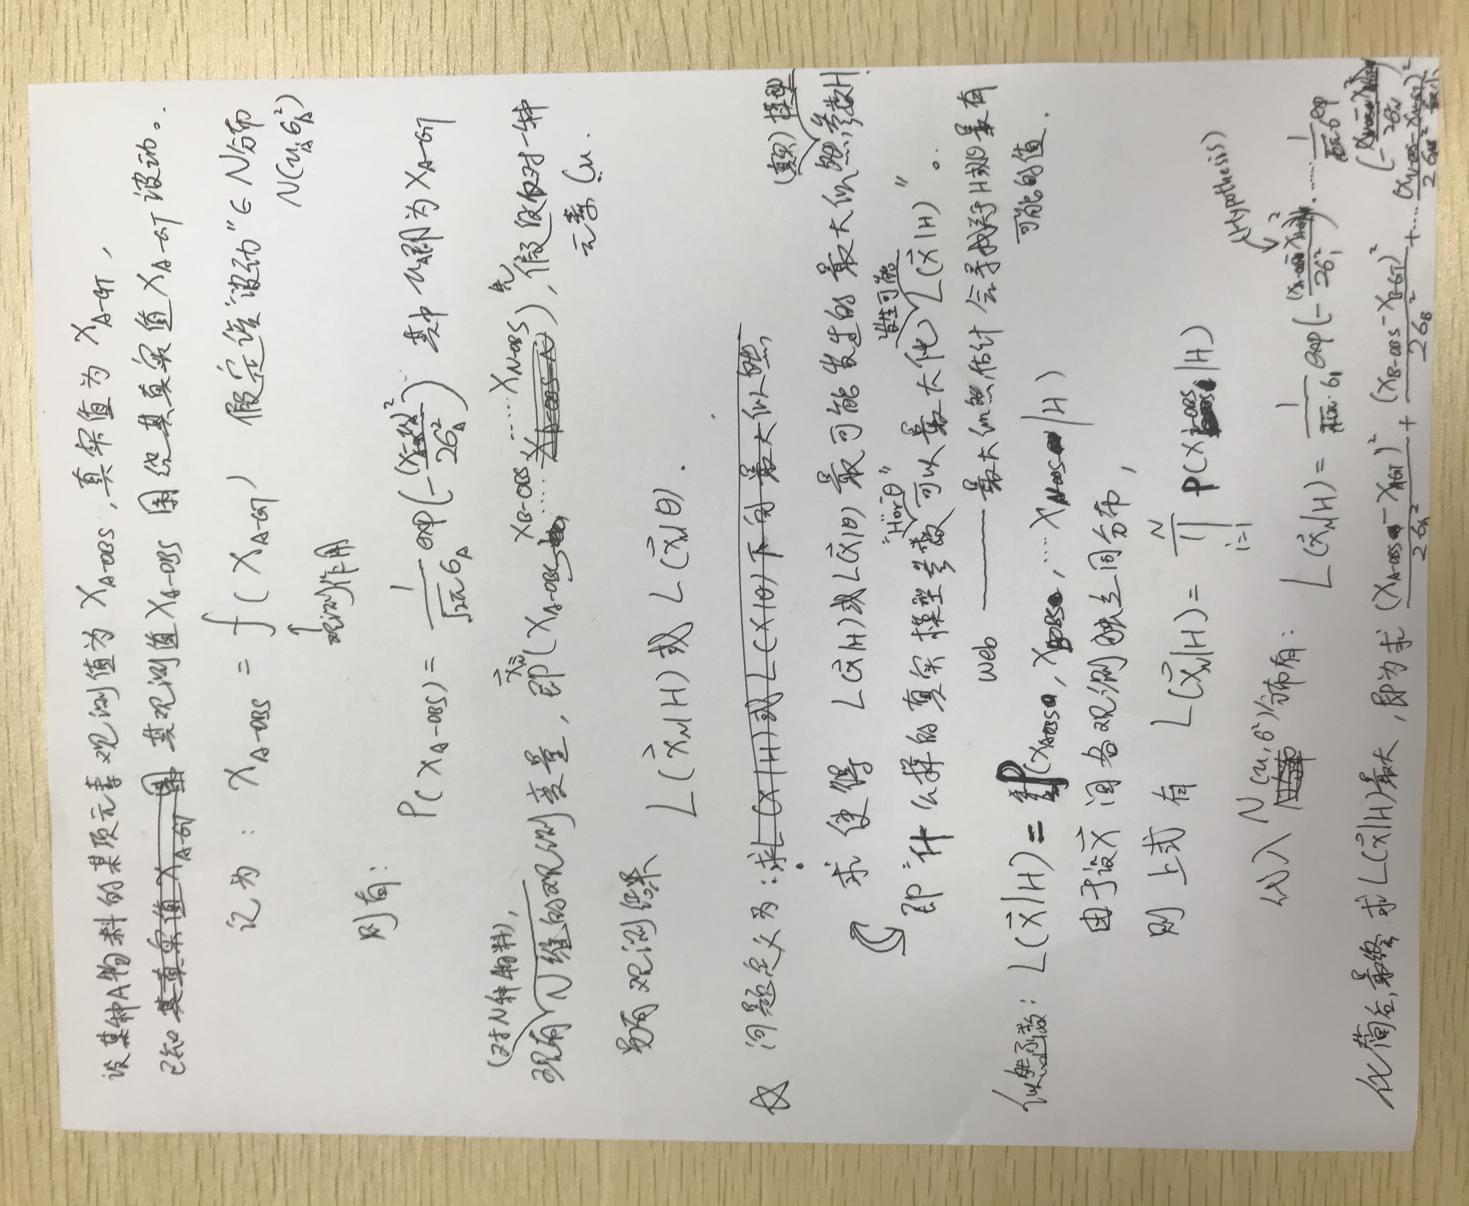 设某种A物料的某项元素观测值为 X_{A-OBS}, 真实值为 X_{A-GT},
已知 其观测值 X_{A-OBS} 围绕其真实值 X_{A-GT} 波动。
记为: X_{A-OBS} = f(X_{A-GT}) 假定该"波动" ∈ N分布
N(u_A, σ_A^2)
观测作用
则有: P(X_{A-OBS}) = \frac{1}{\sqrt{2π} σ_A} exp(-\frac{(X-u_A)^2}{2σ_A^2}) 其中 u_A即为 X_{A-GT}
(对N种物料),
现有 N维的观测变量, 即 (X_{A-OBS}, X_{B-OBS} …… X_{N-OBS}), 先假设仅对一种
元素 Cu.
另有观测结果 L(\vec{X}_N|H) 或 L(\vec{X}_N|θ).
问题定义为: 求L(X|H)或L(X|θ)下的最大似然,
(真实)模型
求使得 L(\vec{X}|H)或L(\vec{X}|θ)最可能发生的最大似然参数H.
即"什么样的真实模型参数 "H or θ" 可以最大化 发生可能 L(\vec{X}|H)"。
Web —— 最大似然估计会寻找关于H或θ最有
可能的值.
似然函数: L(\vec{X}|H) = P(X_{A-OBS}, X_{B-OBS}, …… X_{N-OBS}|H)
由于设 \vec{X} 间各观测独立同分布,
则上式有 L(\vec{X}_N|H) = \prod_{i=1}^{N} P(X_{i-OBS}|H)
(Hypothesis)
代入 N(u, σ^2)分布有: L(\vec{X}_N|H) = \frac{1}{\sqrt{2π}·σ_1} exp(-\frac{}{2σ_1^2}) …… \frac{1}{\sqrt{2π} σ} exp
化简后, 最终求L(\vec{X}|H)最大, 即为求 \frac{(X_{A-OBS} - X_{A-GT})^2}{2σ_A^2} + \frac{(X_{B-OBS} - X_{B-GT})^2}{2σ_B^2} + …… \frac{(X_{N-OBS} - X_{N-GT})^2}{2σ_N^2} 最小